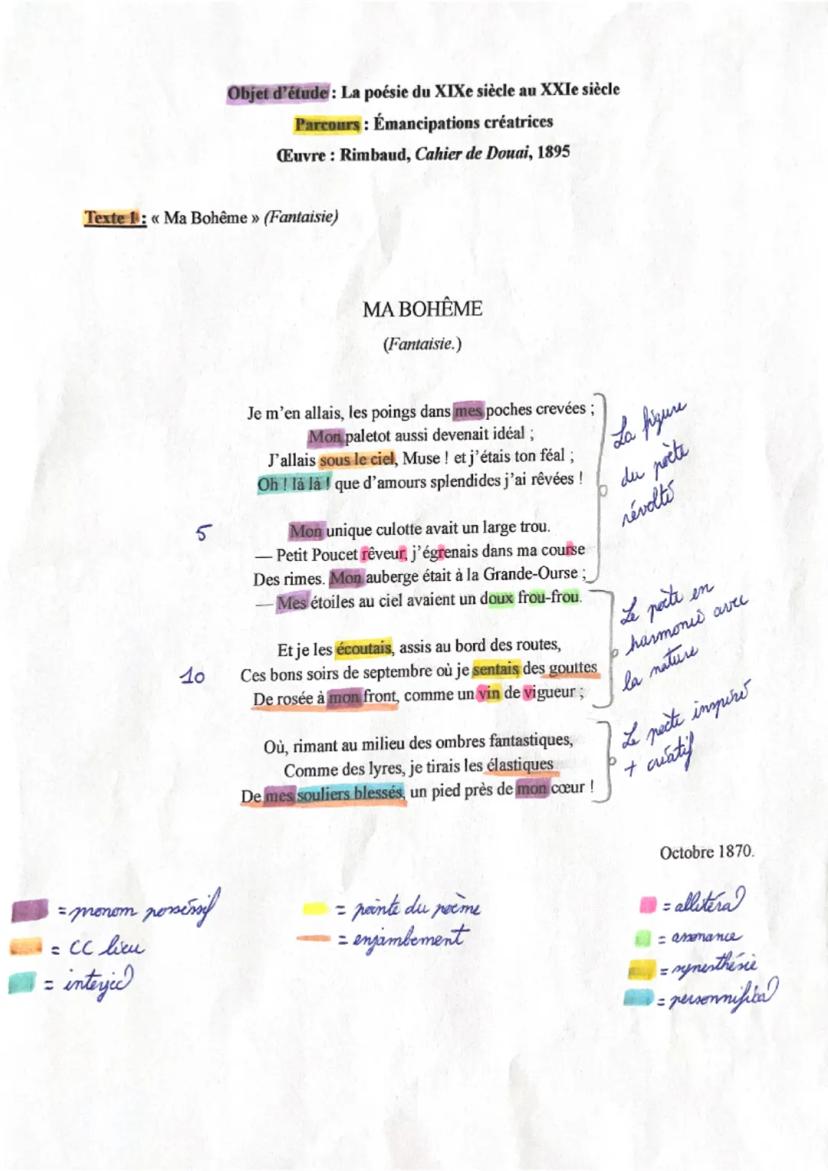 Objet d'étude : La poésie du XIXe siècle au XXIe siècle
Parcours : Émancipations créatrices
Œuvre : Rimbaud, Cahier de Douai, 1895
Texte 1 : « Ma Bohême » (Fantaisie)
MA BOHÊME
(Fantaisie.)
Je m'en allais, les poings dans mes poches crevées ;
Mon paletot aussi devenait idéal ;
J'allais sous le ciel, Muse ! et j'étais ton féal ;
Oh ! là là ! que d'amours splendides j'ai rêvées !
La figure
du poète
révolté
5
Mon unique culotte avait un large trou.
— Petit Poucet rêveur, j'égrenais dans ma course
Des rimes. Mon auberge était à la Grande-Ourse ;
— Mes étoiles au ciel avaient un doux frou-frou.
Et je les écoutais, assis au bord des routes,
10
Ces bons soirs de septembre où je sentais des gouttes
De rosée à mon front, comme un vin de vigueur ;
Le poète en
harmonie avec
la nature
Où, rimant au milieu des ombres fantastiques,
Comme des lyres, je tirais les élastiques
De mes souliers blessés, un pied près de mon cœur !
Le poète inspiré
+ créatif
Octobre 1870.
= pronom possessif
= CC lieu
= interjec
= pointe du poème
= enjambement
= allitéra
= assonance
= synesthésie
= personnifica